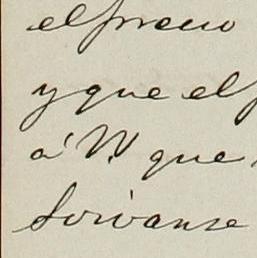 el precio
y que el p
á V. que
Sirvanse